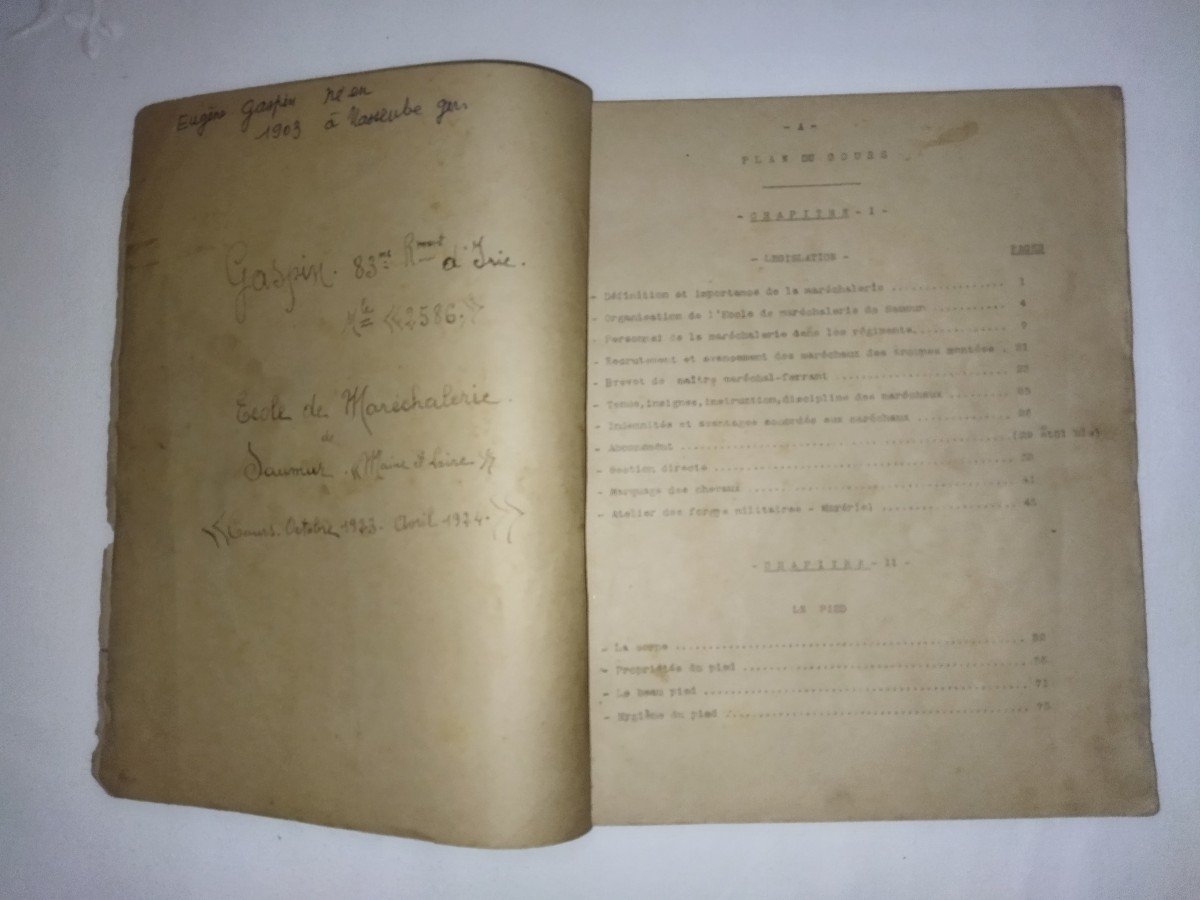 Eugène Gaspin né en
1903 à Masseube gers
Gaspin. 83me Rment d'Irie.
Mle «2586.»
Ecole de Maréchalerie.
de
Saumur. «Maine & Loire.»
«Cours. Octobre 1923. Avril 1924.»
- A -
PLAN DU COURS
- CHAPITRE - I -
- LEGISLATION - PAGES
- Définition et importance de la maréchalerie .................. 1
- Organisation de l'Ecole de maréchalerie de Saumur ............ 4
- Personnel de la maréchalerie dans les régiments............. 9
- Recrutement et avancement des maréchaux des troupes montées . 21
- Brevet de maître maréchal-ferrant ..........................
- Tenue,insignes,instruction,discipline des maréchaux .........
- Indemnités et avantages accordés aux maréchaux ..............
- Abonnement ..................................
- Gestion directe .............................................
- Marquage des chevaux ........................................ 41
- Atelier des forges militaires - Matériel ....................
- CHAPITRE - II -
LE PIED
- La corne ....................................................
- Propriétés du pied ..........................................
- Le beau pied ................................................
- Hygiène du pied .............................................